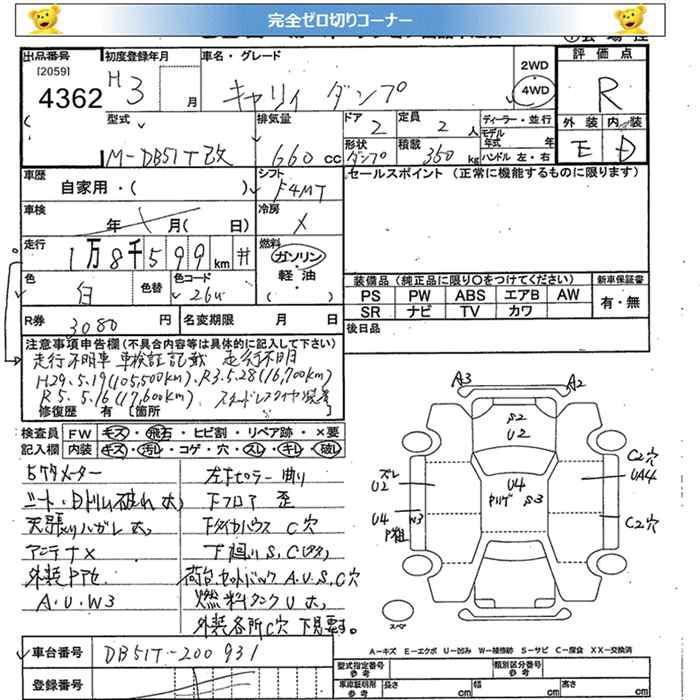 完全ゼロ切りコーナー
出品番号
[2059]
4362
初度登録年月
H3 月
車名・グレード
キャリイ ダンプ
2WD
4WD
評価点
R
外装 内装
E D
型式
M-DB51T改
排気量
660 cc
ドア
2
定員
2 人
形状
ダンプ
積載
350 kg
ディーラー・並行
モデル
年式 年
ハンドル 左・右
車歴
自家用・( )
シフト
F4MT
セールスポイント (正常に機能するものに限ります)
車検
年 月( 日)
冷房
×
走行
1万8千599 km #
燃料
ガソリン・
軽油
( )
色
白
色替
色コード
26U
装備品 (純正品に限り○をつけてください)
新車保証書
PS PW ABS エアB AW
SR ナビ TV カワ
有・無
R券 3080 円
名変期限 月 日
後日品
注意事項申告欄 (不具合内容等は具体的に記入して下さい)
走行不明車 車検証記載 走行不明
H29.5.19(105,500km).R3.5.28(16,700km)
R5.5.16(17,600km). スタッドレスタイヤ装着
修復歴 有 〔箇所
検査員
記入欄
FW キズ・飛石・ヒビ割・リペア跡・×要
内装 キズ・汚レ・コゲ・穴・スレ・キレ・破レ
5ケタメーター
シート・日ドリム破れ大
天張りハガレ大
アンテナ×
外装Pアセ
A.U.W3
左Fピラー曲り
下フロア 歪
下タイヤハウス C穴
下廻りS.C(タタ)
荷台.セットバック A.U.S.C穴
燃料タンクU大
外装各所C穴 下見要す。
A3
A2
S2
U2
U4
S3
ズレ
U2
U4
W3
P粗
C2穴
UA4
C2穴
スペア
A－キズ E－エクボ U－凹み W－補修跡 S－サビ C－腐食 XX－交換済
車台番号
DB51T-200931
登録番号
型式指定番号
参考
類別区分番号
参考
車庫証明用
参考
長さ cm
幅 cm
高さ cm